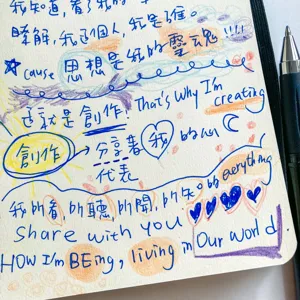 我知道,看了我的
瞭解,我這個人,我是誰。
cause 思想是我的靈魂!!!!
這就是創作! That's why I'm creating
創作 → 分享著 我 的心
代表
我所看,所聽,所聞,所知。的 everything
Share with you
HOW I'm BEing, living in Our world